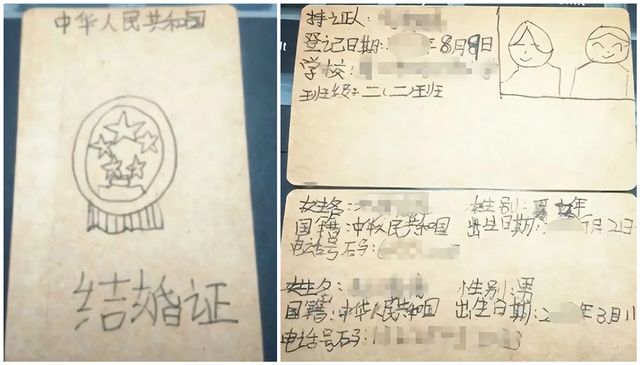 中华人民共和国
结婚证
持证人:
登记日期: 年8月8日
学校:
班级:二(二)班
姓名: 性别:
国籍:中华人民共和国 出生日期: 月2日
电话号码:
姓名: 性别:男
国籍:中华人民共和国 出生日期:2 年3月11
电话号码: